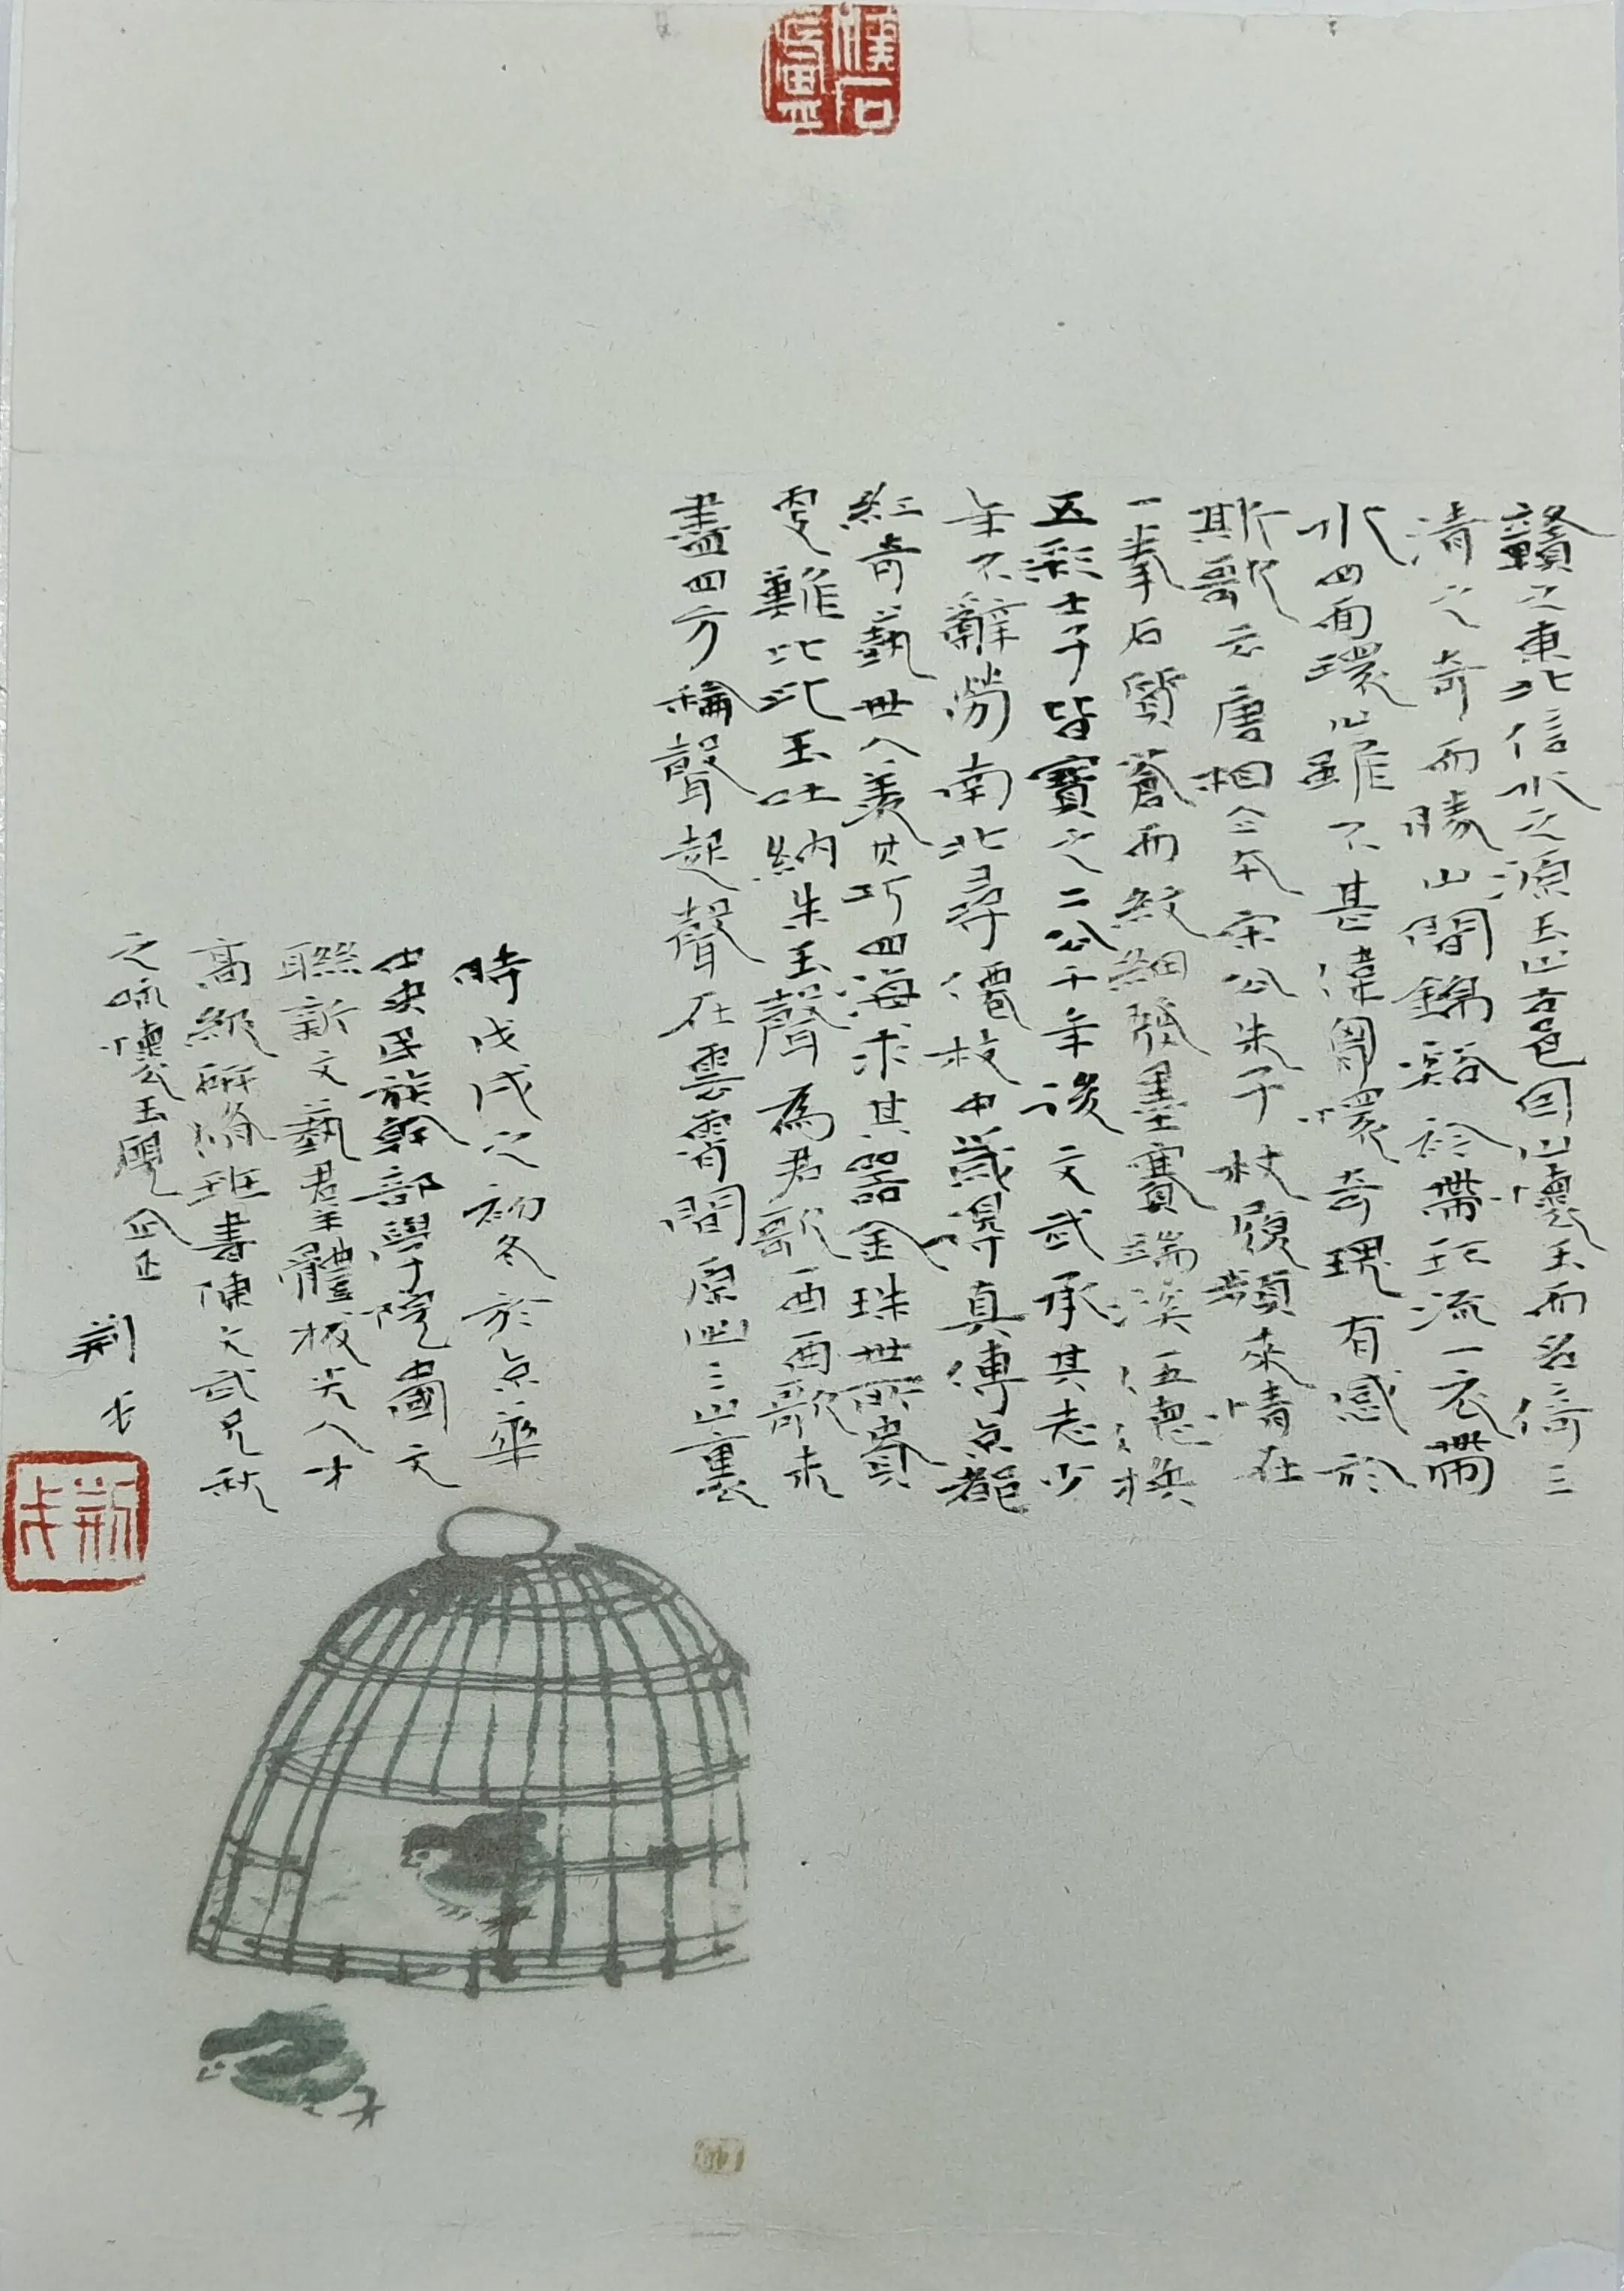 贛之東北信水之源玉山古邑因山懷玉而名倚三
清之奇而勝山間錦谿衿帶玩流一衣帶
水四面環山雖不甚偉匈環奇瑰有感於
斯歌云唐相令本宋公朱子杖履頻來情在
一拳石質蒼而紋細發墨賽端溪伍德換
五彩士子皆寶之二公千年後文武承其志少
年不辭勞南北尋價枚中歲得真傳京都
紅奇藝世人羨其巧四海求其器金珠世所貴
更難比此玉吐納朱玉聲為君歌酉酉歌未
盡四方稱聲起聲在雲霄間原此三山裏
時戊戌之初冬於京華
中央民族幹部學院畫國文
聯新文藝君主體板尖人才
高級研修班書陳文武兄秋
之硯懷玉硯 正
荊长